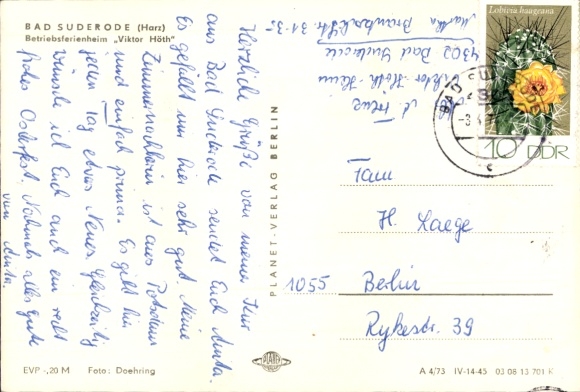 BAD SUDERODE (Harz)
Betriebsferienheim „Viktor Höth"
Herzliche Grüße von meiner Kur
aus Bad Suderode sendet Euch Anita.
Es gefällt mir hier sehr gut. Meine
Zimmernachbarin ist aus Potsdam
und einfach prima. Es gibt hier
jeden Tag etwas Neues. Gleichzeitig
wünsche ich Euch auch ein recht
frohes Osterfest. Nochmals alles gute
von Anita.
EVP -,20 M Foto: Doehring
PLANET-VERLAG BERLIN
PLANET
Viktor-Höth-Heim
4302 Bad Suderode
Martha Str. 31-35
Lobivia haageana
10 DDR
BAD SU
c
Fam.
H. Laege
1055 Berlin
Rykestr. 39
A 4/73 IV-14-45 03 08 13 701 K